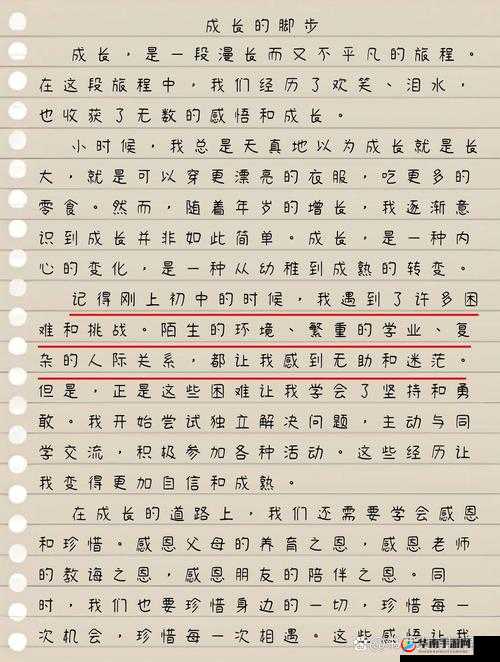 成长的脚步
成长，是一段漫长而又不平凡的旅程。
在这段旅程中，我们经历了欢笑、泪水，
也收获了无数的感悟和成长。
小时候，我总是天真地以为成长就是长
大，就是可以穿更漂亮的衣服，吃更多的
零食。然而，随着年岁的增长，我逐渐意
识到成长并非如此简单。成长，是一种内
心的变化，是一种从幼稚到成熟的转变。
记得刚上初中的时候，我遇到了许多困
难和挑战。陌生的环境、繁重的学业、复
杂的人际关系，都让我感到无助和迷茫。
但是，正是这些困难让我学会了坚持和勇
敢。我开始尝试独立解决问题，主动与同
学交流，积极参加各种活动。这些经历让
我变得更加自信和成熟。
在成长的道路上，我们还需要学会感恩
和珍惜。感恩父母的养育之恩，感恩老师
的教诲之恩，感恩朋友的陪伴之恩。同
时，我们也要珍惜身边的一切，珍惜每一
次机会，珍惜每一次相遇。这些感悟让我
华南手游网